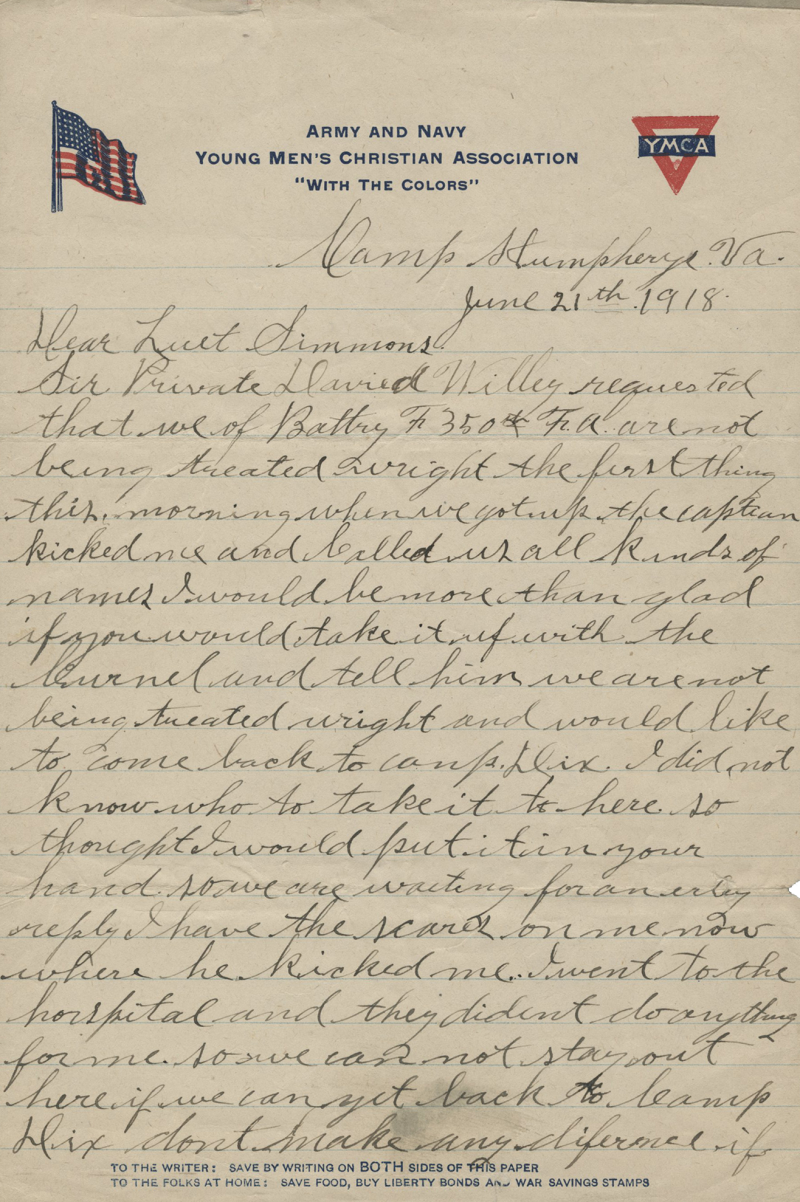 ARMY AND NAVY
YOUNG MEN'S CHRISTIAN ASSOCIATION
"WITH THE COLORS"
YMCA
Camp Humpherys. Va.
June 21th. 1918.
Dear Luet Simmons.
Sir Private David Willey requested
that we of Battry F 350th F.A. are not
being treated wright the first thing
this. morning when we got up the captian
kicked me and Called us all kinds of
names I would be more than glad
if you would take it up with the
Curnel and tell him we are not
being treated wright and would like
to come back to camp. Dix. I did not
know who to take it to here so
thought I would put it in your
hand. so we are waiting for an erley
reply I have the scares on me now
where he kicked me. I went to the
horspital and they dident do anything
for me. so we can not stay out
here if we can get back to Camp
Dix dont make any diference if
TO THE WRITER: SAVE BY WRITING ON BOTH SIDES OF THIS PAPER
TO THE FOLKS AT HOME: SAVE FOOD, BUY LIBERTY BONDS AND WAR SAVINGS STAMPS